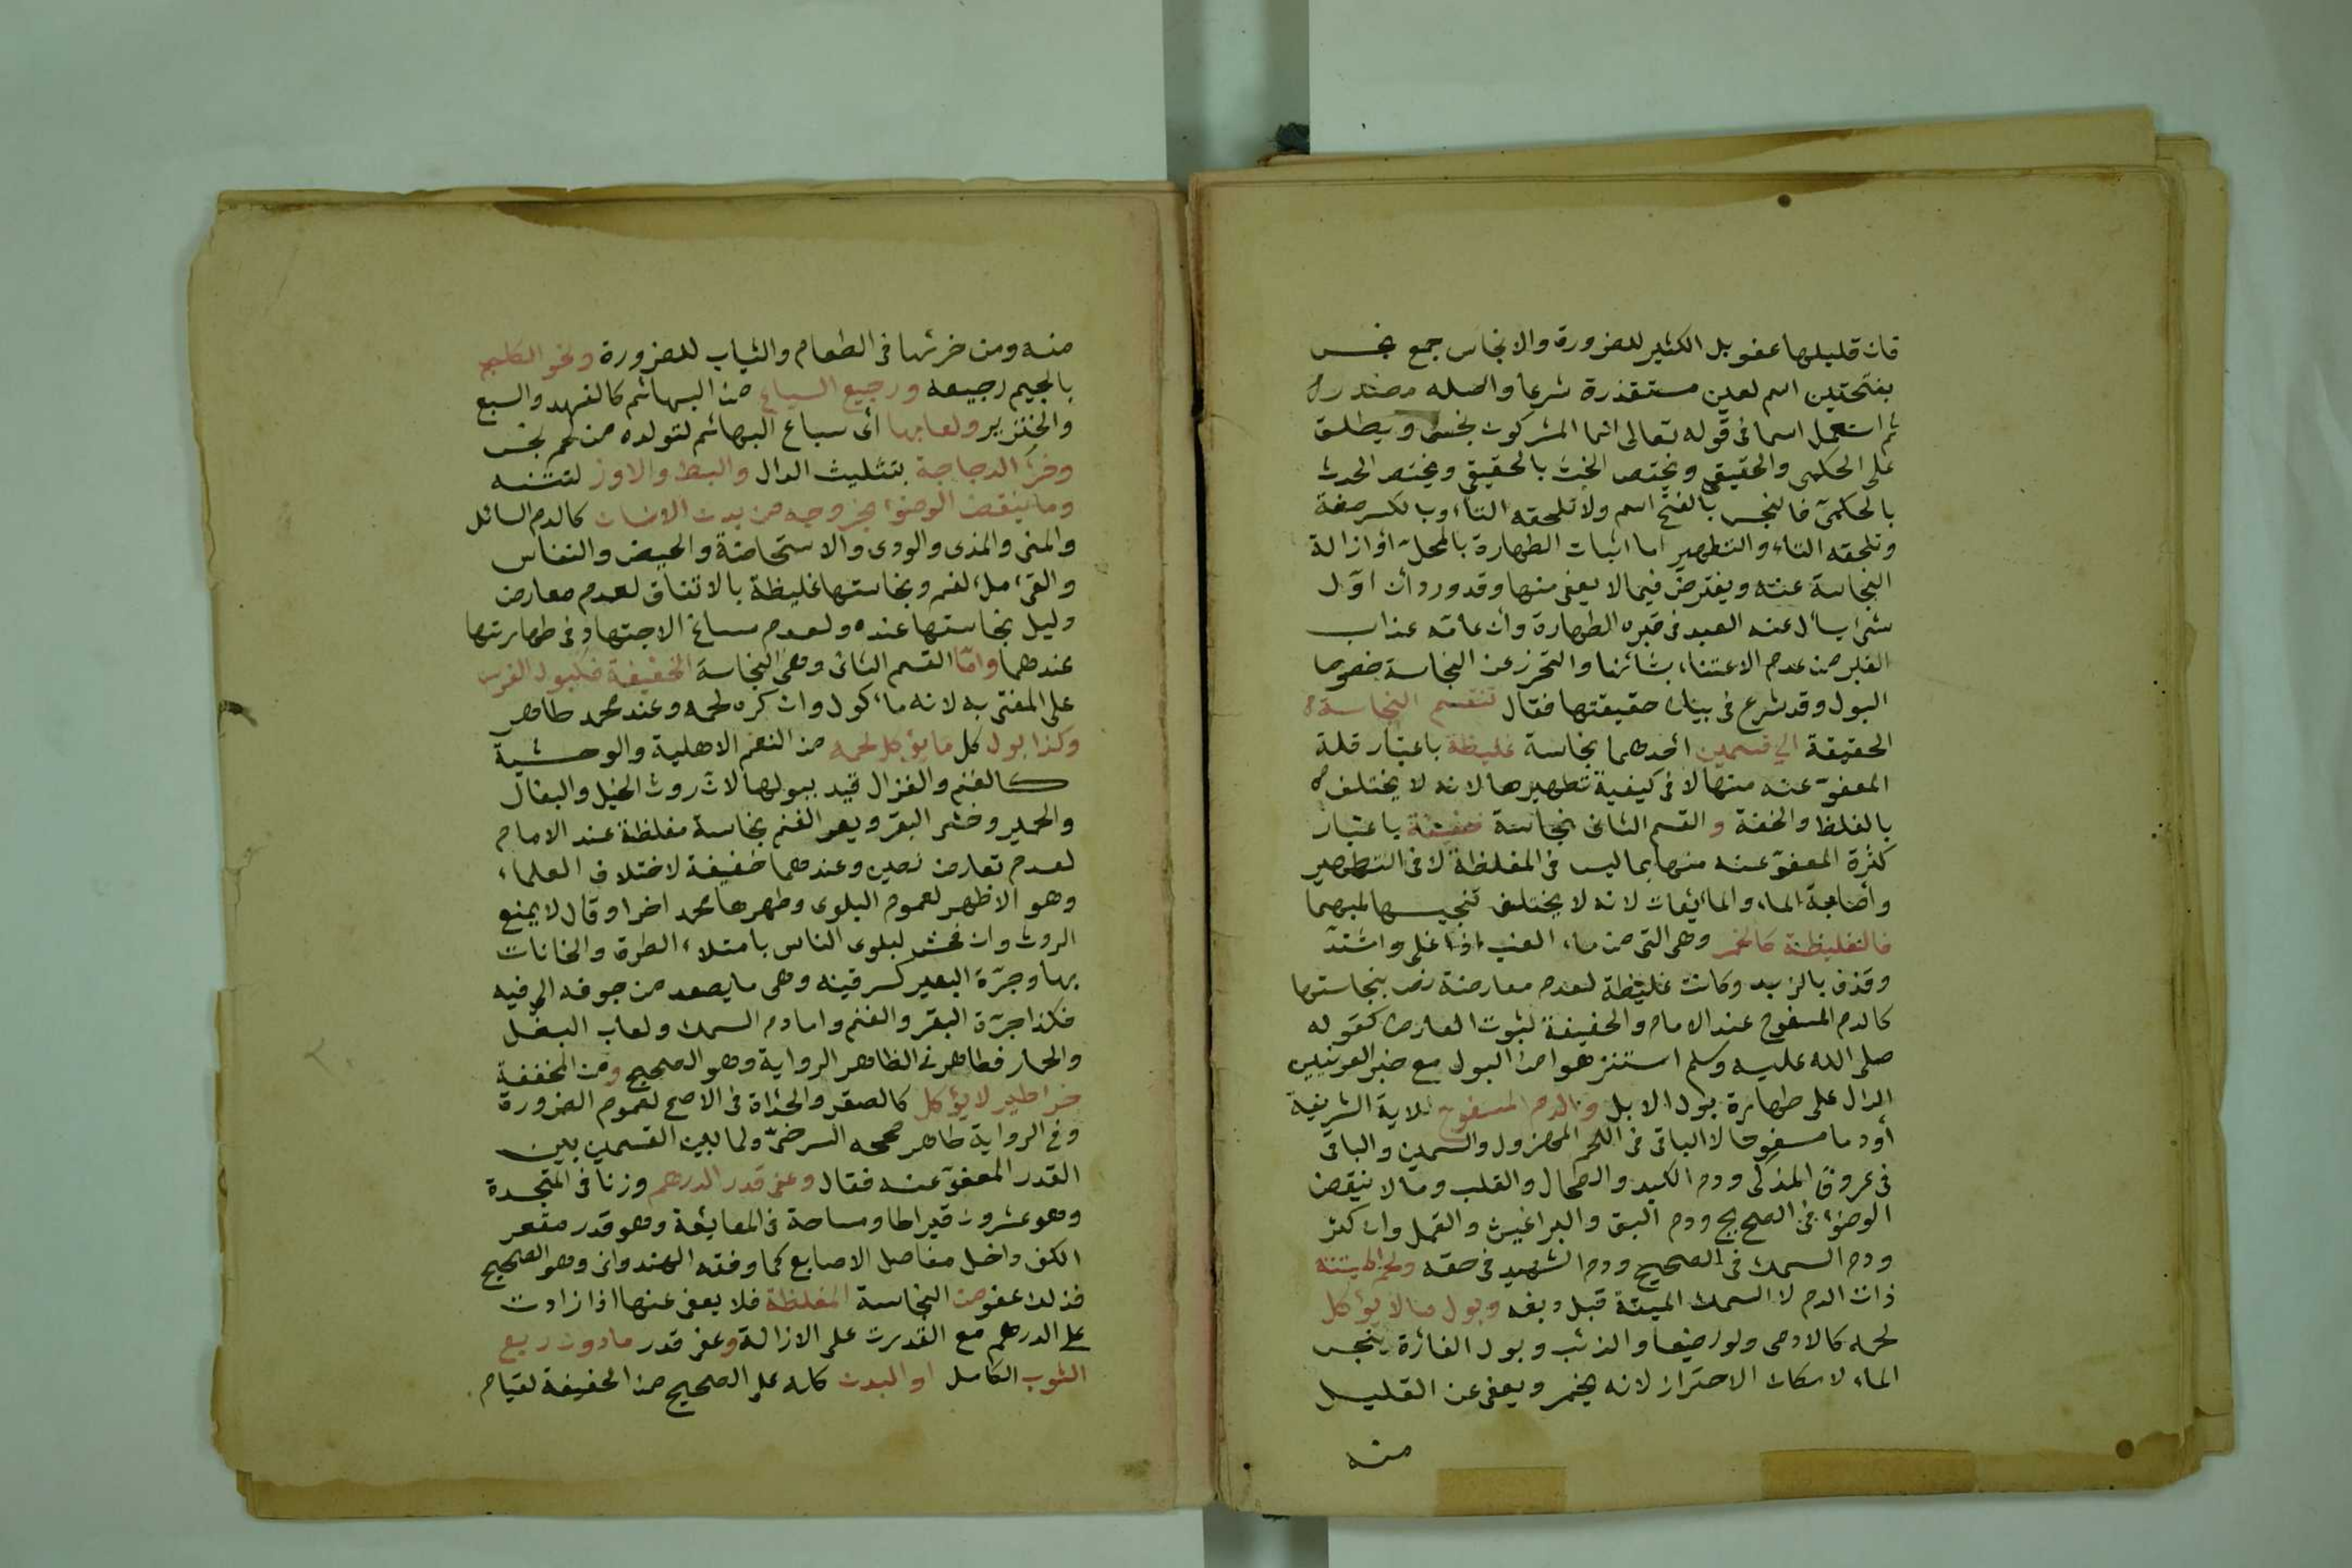 فان قليلها عفو بل الكثير للضرورة والانجاس جمع نجس
بفتحتين اسم لعين مستقذرة شرعا واصله مصدر
ثم استعمل اسما فى قوله تعالى انما المشركون نجس ويطلق
على الحكمى والحقيقى ويختص الخبث بالحقيقى ويختص الحدث
بالحكمى فالنجس بالفتح اسم ولا تلحقه التاء وبالكسر صفة
وتلحقه التاء والتطهير اما اثبات الطهارة بالمحل او ازالة
النجاسة عنه ويفترض فيما لا يعفى منها وقد ورد أن اول
شئ يسأل عنه العبد فى قبره الطهارة وأن عامة عذاب
القبر من عدم الاعتناء بشأنها والتحرز عن النجاسة خصوصا
البول وقد شرع فى بيان حقيقتها فقال تنقسم النجاسة
الحقيقة الي قسمين أحدهما نجاسة غليظة باعتبار قلة
المعفوّ عنه منها لا فى كيفية تطهيرها لانه لا يختلف
بالغلظ والخفة والقسم الثانى نجاسة خفيفة باعتبار
كثرة المعفوّ عنه منها بما ليس فى المغلظة لا فى التطهير
وأصابة الماء والمائعات لانه لا يختلف تنجيسها بهما
فالغليظة كالخمر وهى التى من ماء العنب اذا غلى واشتدّ
وقذف بالزبد وكانت غليظة لعدم معارضة نص بنجاستها
كالدم المسفوح عند الامام والخفيفة لثبوت المعارض كقوله
صلى الله عليه وسلم استنزهوا من البول مع خبر العرنيين
الدال على طهارة بول الابل والدم المسفوح للاية الشريفة
أو دما مسفوحا لا الباقى فى اللحم المهزول والسمين والباقى
فى عروق المذكى ودم الكبد والطحال والقلب وما لا ينقض
الوضوء فى الصحيح ودم البق والبراغيث والقمل وان كثر
ودم السمك فى الصحيح ودم الشهيد فى حقه ولحم الميتة
ذات الدم لا السمك الميتة قبل دبغه وبول ما لا يؤكل
لحمه كالادمى ولو رضيعا والذئب وبول الفارة ينجس
الماء لامكان الاحتراز لانه يخمر ويعفى عن القليل
منه
منه ومن خرئها فى الطعام والثياب للضرورة ونجو الكلب
بالجيم رجيعه ورجيع السباع من البهائم كالفهد والسبع
والخنزير ولعابها أى سباع البهائم لتولده من لحم نجس
وخرء الدجاجة بتثليث الدال والبط والاوز لنتنه
وما ينقض الوضوء بخروجه من بدن الانسان كالدم السائل
والمنى والمذى والودى والاستحاضة والحيض والنفاس
والقئ ملء الفم ونجاستها غليظة بالاتفاق لعدم معارض
دليل نجاستها عنده ولعدم مساغ الاجتهاد فى طهارتها
عندهما وامّا القسم الثانى وهى النجاسة الخفيفة فكبول الفرس
على المفتى به لانه مأكول وان كره لحمه وعند محمد طاهر
وكذا بول كل ما يؤكل لحمه من النعم الاهلية والوحشية
كالغنم والغزال قيد ببولها لان روث الخيل والبغال
والحمير وخثى البقر وبعر الغنم نجاسة مغلظة عند الامام
لعدم تعارض نصين وعندهما خفيفة لاختلاف العلماء
وهو الاظهر لعموم البلوى وطهرها محمد اخرا وقال لا يمنع
الروث وان فحش لبلوى الناس بامتلاء الطرق والخانات
بها وجرّة البعير كسرقينه وهى ما يصعد من جوفه الى فيه
فكذا جرّة البقر والغنم واما دم السمك ولعاب البغل
والحمار فطاهر فى الظاهر الرواية وهو الصحيح ومن المخففة
خرء طير لا يؤكل كالصقر والحداة فى الاصح لعموم الضرورة
وفى الرواية طاهر صححه السرخسى ولما بين القسمين بين
القدر المعفوّ عنه فقال وعفى قدر الدرهم وزنا فى المتجسدة
وهو عشرون قيراطا ومساحة فى المايعة وهو قدر مقعر
الكف داخل مفاصل الاصابع كما وفقه الهندوانى وهو الصحيح
فذلك عفو من النجاسة المغلظة فلا يعفى عنها اذا زادت
على الدرهم مع القدرت على الازالة وعفى قدر مادون ربع
الثوب الكامل او البدن كله على الصحيح من الخفيفة لقيام